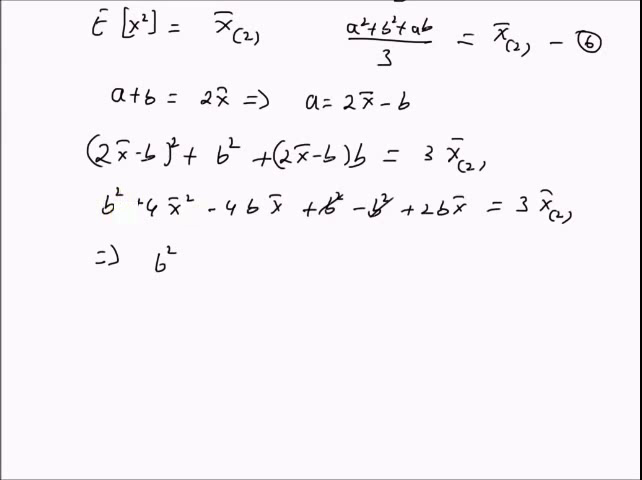 E [x²] = x̄₍₂₎ (a²+b²+ab)/3 = x̄₍₂₎ - ⑥
a+b = 2x̄ => a = 2x̄ - b
(2x̄-b)² + b² + (2x̄-b)b = 3 x̄₍₂₎
b² + 4 x̄² - 4 b x̄ + b² - b² + 2bx̄ = 3 x̄₍₂₎
=> b²